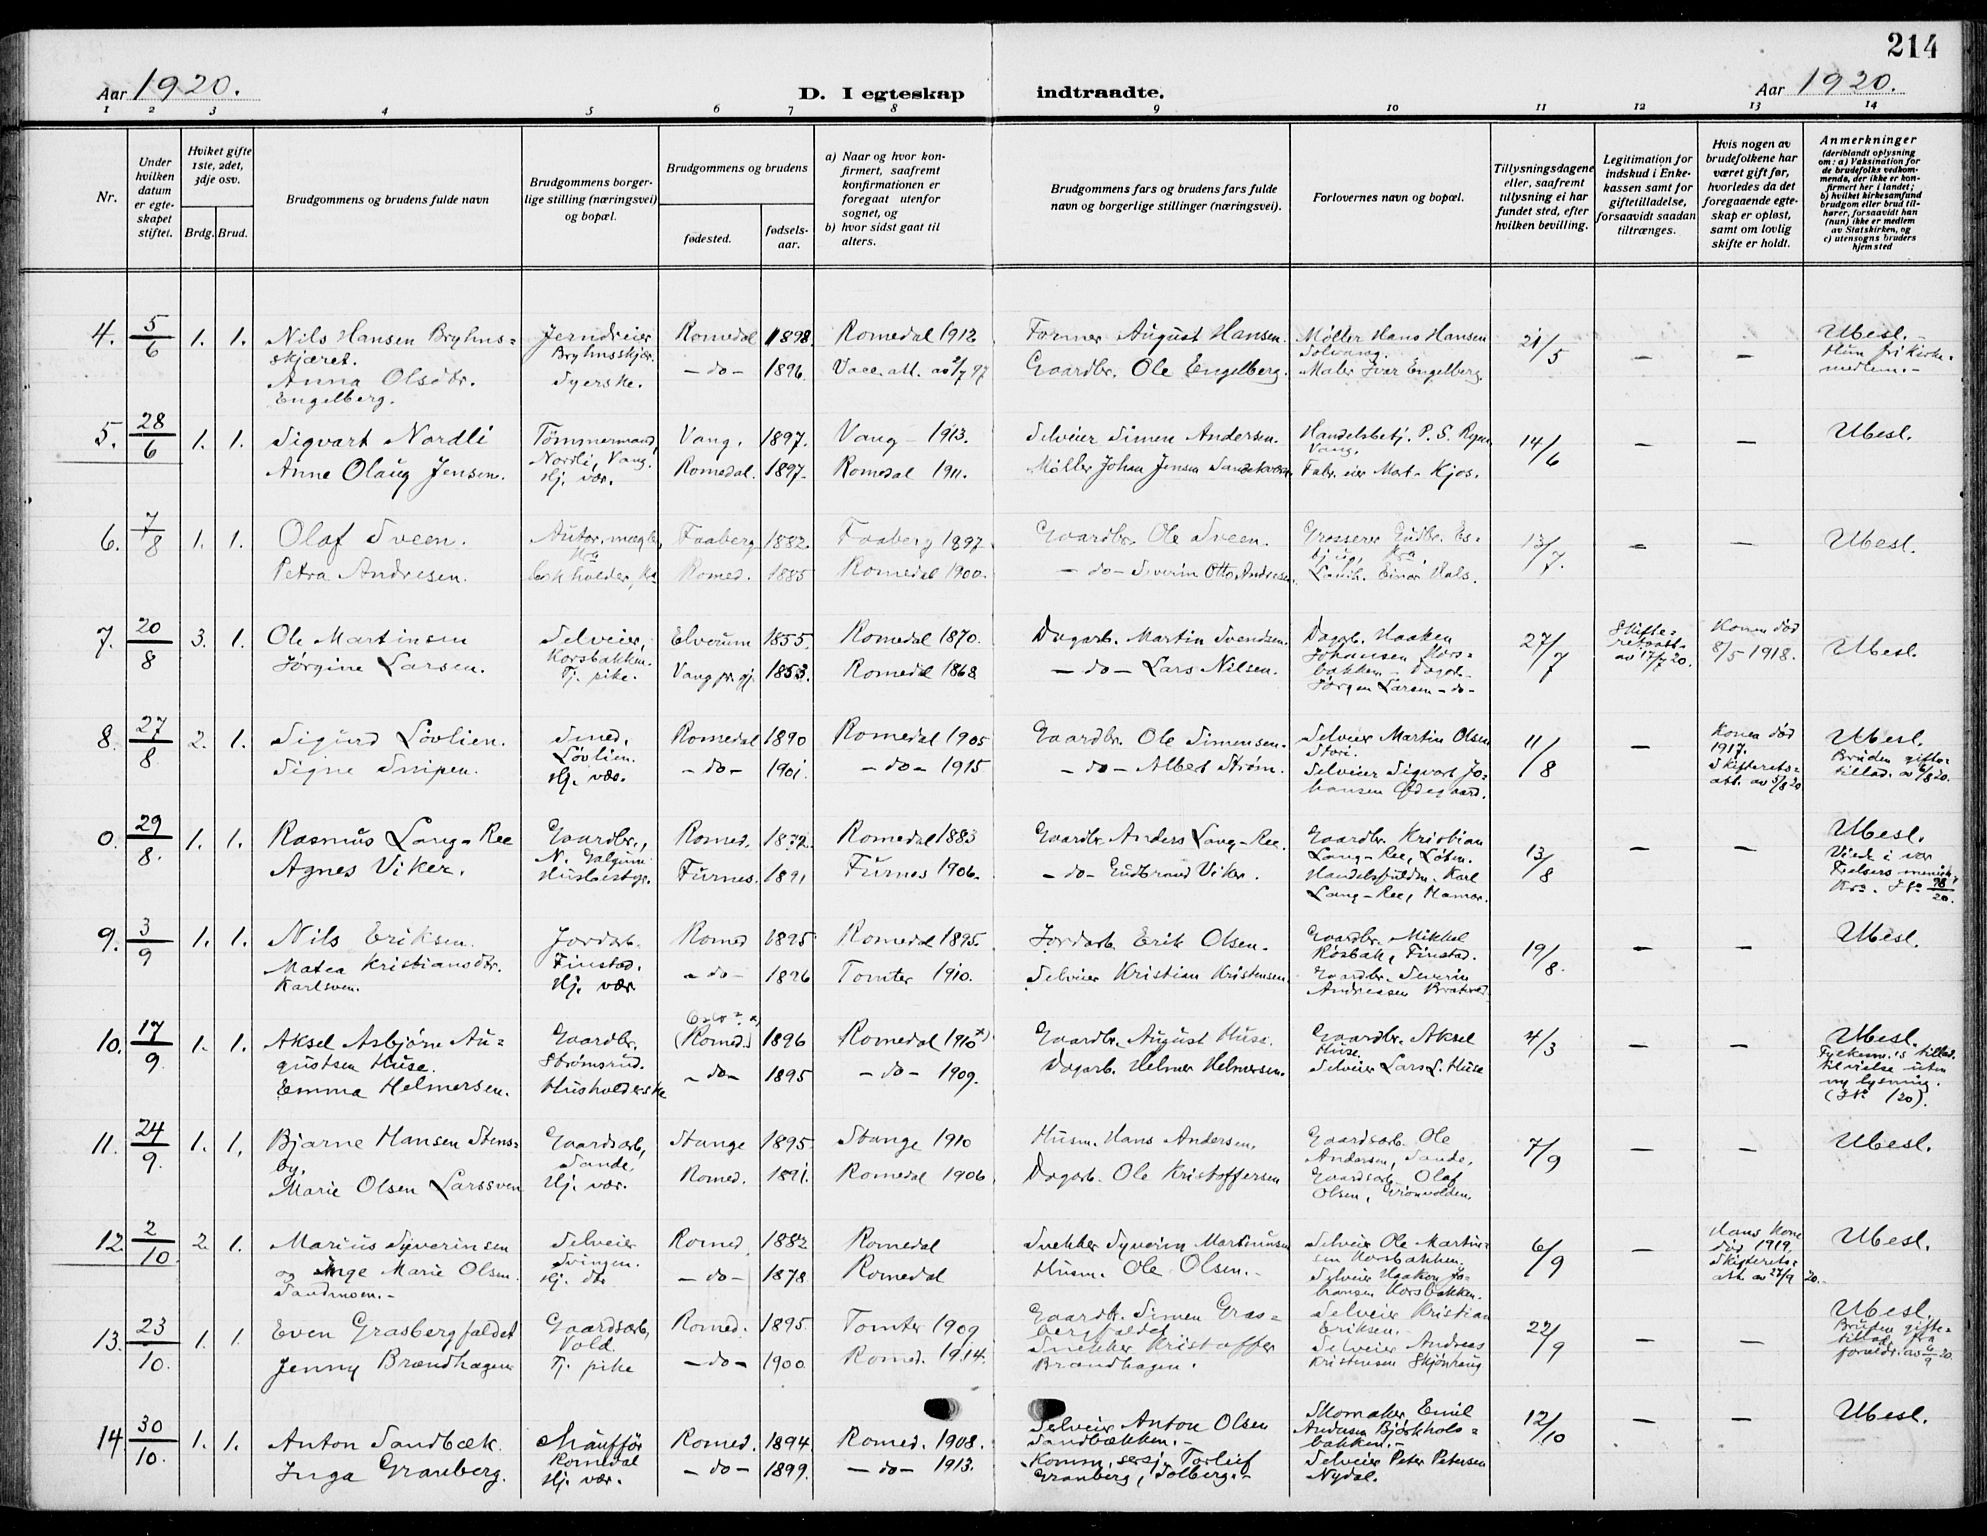 214
Aar 1920.
D. I egteskap indtraadte.
Aar 1920.
1 2 3 4 5 6 7 8 9 10 11 12 13 14
Nr.
Under hvilken datum er egteskapet stiftet.
Hviket gifte 1ste, 2det, 3dje osv.
Brdg. Brud.
Brudgommens og brudens fulde navn
Brudgommens borgerlige stilling (næringsvei) og bopæl.
Brudgommens og brudens
fødested.
fødselsaar.
a) Naar og hvor konfirmert, saafremt konfirmationen er foregaat utenfor sognet, og
b) hvor sidst gaat til alters.
Brudgommens fars og brudens fars fulde navn og borgerlige stillinger (næringsvei).
Forlovernes navn og bopæl.
Tillysningsdagene eller, saafremt tillysning ei har fundet sted, efter hvilken bevilling.
Legitimation for indskud i Enkekassen samt for giftetilladelse, forsaavidt saadan tiltrænges.
Hvis nogen av brudefolkene har været gift før, hvorledes da det foregaaende egteskap er opløst, samt om lovlig skifte er holdt.
Anmerkninger
(deriblandt oplysning om: a) Vaksination for de brudefolks vedkommende, der ikke er konfirmert her i landet; b) hvilket kirkesamfund brudgom eller brud tilhører, forsaavidt han (hun) ikke er medlem av Statskirken, og c) utensogns bruders hjemsted
4. 5/6 1. 1. Nils Hansen Bryhnsskjæret. Jerndreier Bryhnsskjær. Romedal 1898. Romedal 1912 Former August Hansen. Møller Hans Hansen Solvang. 21/5 — — Ubesl.
Anna Olsdtr. Engelberg. Syerske. —do— 1896. Vacc. att. av 2/7 97 Gaardbr. Ole Engelberg. Maler Ivar Engelberg. Hun frikirkemedlem.
5. 28/6 1. 1. Sigvart Nordli Tømmermand, Nordli, Vang. Vang. 1897. Vang 1913. Selveier Simen Andersen. Handelsbetj. P. S. Vang. 14/6 — — Ubesl.
Anne Olaug Jensen. Hj. vær. Romedal. 1897. Romedal 1911. Møller Johan Jensen Fabr. eier Mart. Kjos.
6. 7/8 1. 1. Olaf Sveen. Faaberg 1882. Faaberg 1897. Gaardbr. Ole Sveen. Grosserer Gudbr. 13/7. — — Ubesl.
Petra Andresen. Romed. 1885 Romedal 1900. —do— Severin Otto Andresen. Einar Hals.
7. 20/8 3. 1. Ole Martinsen Selveier, Korsbakken. Elverum 1855. Romedal 1870. Dagarb. Martin Svendsen. Dagarb. Haaken Johansen Korsbakken 27/7 Skifteretsatt. av 17/7 20. Konen død 8/5 1918. Ubesl.
Jørgine Larsen. Tj. pike. Vang pr.gj. 1853. Romedal 1868 —do— Lars Nilsen. Dagarb. Jørgen Larsen —do—
8. 27/8 2. 1. Sigurd Løvlien. Smed, Løvlien. Romedal 1890 Romedal 1905 Gaardbr. Ole Simensen. Selveier Martin Olsen 11/8 — Konen død 1917. Skifterets-att. av 5/8 20 Ubesl.
Signe Snipen. Hj. vær. —do— 1901. —do— 1915 —do— Albert Strøm. Selveier Sigvart Johansen Ødegaard. Bruden giftetillad. av 6/8 20.
0. 29/8. 1. 1. Rasmus Lang-Ree Gaardbr., Romed. 1872. Romedal 1883 Gaardbr. Anders Lang-Ree. Gaardbr. Kristian Lang-Ree, Løten. 13/8 — — Ubesl.
Agnes Viker. Furnes. 1891 Furnes 1906. —do— Gudbrand Viker. Karl Lang-Ree, Hamar. Viede i vor Frelsers
9. 3/9 1. 1. Nils Eriksen. Jordarb. Finstad. Romed 1895 Romedal 1895. Jordarb. Erik Olsen. Gaardbr. Mikkel Røsbak, Finstad. 19/8. — — Ubesl.
Matea Kristiansdtr. Karlsven. Hj. vær —do— 1896 Tomter 1910. Selveier Kristian Kristensen. Gaardbr. Severin Andreassen
10. 17/9 1. 1. Aksel Asbjørn Augustsen Huse. Gaardbr. Strømsrud. (Romed.) 1896 Romedal 1910 x) Gaardbr. August Huse. Gaardbr. Aksel Huse. 4/3 — — Ubesl.
Emma Helmersen. Husholderske —do— 1895 —do— 1909. Dagarb. Helmer Helmersen. Selveier Lars L. Huse Fylkesm.s tillad. til vielse uten ny lysning. (J No 120).
11. 24/9. 1. 1. Bjarne Hansen Stensby. Gaardsarb, Sande. Stange 1895 Stange 1910 Husm. Hans Andersen. Gaardsarb. Ole Andersen, Sande, 7/9 — — Ubesl.
Marie Olsen Larssven Hj. vær. Romed. 1891. Romedal 1906 Dagarb. Ole Kristoffersen Gaardsarb. Olaf Olsen, Grønvolden.
12. 2/10 2. 1. Marius Syverinsen Selveier Svingen. Romed 1882 Romedal Snekker Syverin Martinusen Selveier Ole Martinsen Korsbakken. 6/9 — Hans kone død 1919. Skifterets-att. av 27/9 20. Ubesl.
og Inge Marie Olsen Sandmoen.- Hj. —do— 1878 Romedal Husm. Ole Olsen.- Selveier Haakon Johansen Korsbakken.
13. 23/10. 1. 1. Even Grasbergfaldet Gaardsarb, Vold. Romed. 1895. Tomter 1909 Gaardb. Simen Grasbergfaldet Selveier Kristian Eriksen. 22/9 — — Ubesl.
Jenny Brændhagen Tj. pike —do— 1900 Romed. 1914. Snekker Kristoffer Brændhagen. Selveier Andreas Kristensen Skjønhaug Bruden giftetillad. fra foreldr. av 6/9 20.
14. 30/10. 1. 1. Anton Sandbæk Chauffør Romedal Romed. 1894 Romed. 1908. Selveier Anton Olsen Sandbækken.- Skomaker Emil Andersen Bjørkholsbakken.- 12/10 — — Ubesl.
Inga Granberg. Hj. vær. —do— 1899. —do— 1913. Komm. sersj. Torleif Granberg, Solberg.- Selveier Peter Petersen Nydal.